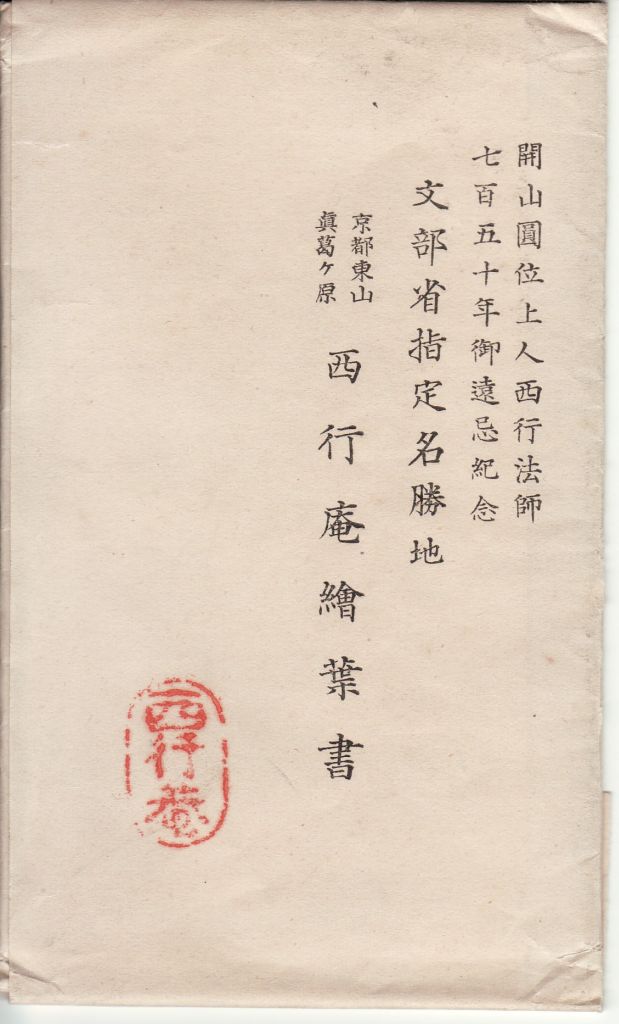 開山圓位上人西行法師
七百五十年御遠忌紀念
文部省指定名勝地
京都東山
眞葛ヶ原
西行庵繪葉書
西行菴